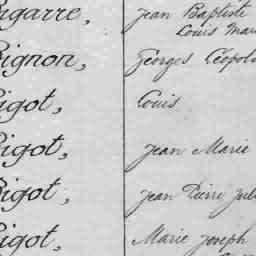 igarre, Jean Baptiste
Louis Mar
ignon, Georges Léopol
igot, Louis
igot, Jean Marie
igot, Jean Pierre Jul
igot, Marie Joseph